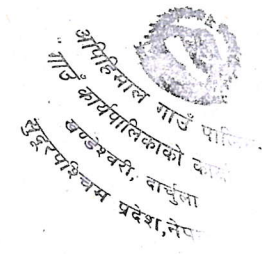 अपिहिमाल गाउँ पालि
गाउँ कार्यपालिकाको कार्या
खण्डेश्वरी, दार्चुला
सुदूरपश्चिम प्रदेश, नेपा